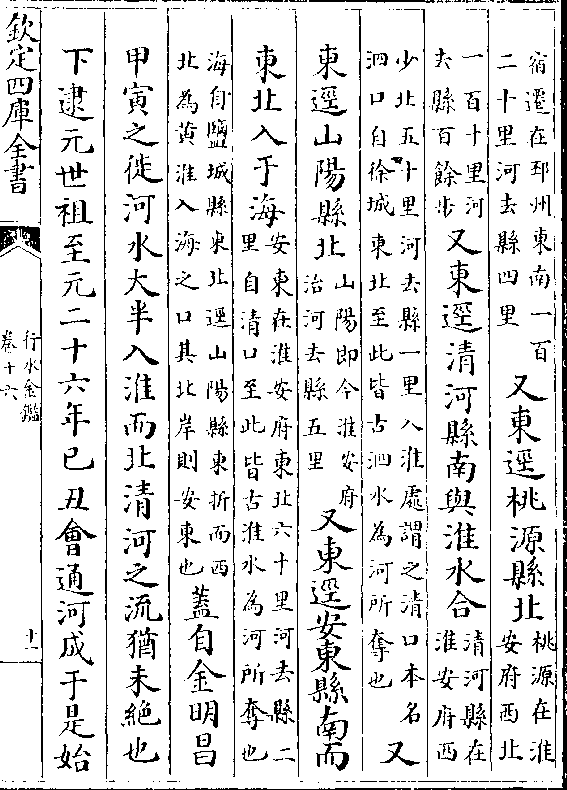 宿遷在邳州東南一百
二十里河去縣四里
又東逕桃源縣北
桃源在淮
安府西北
一百十里河
去縣百餘步
又東逕清河縣南與淮水合
清河縣在
淮安府西
少北五十里河去縣一里入淮處謂之清口本名
泗口自徐城東北至此皆古泗水為河所奪也
又
東逕山陽縣北
山陽即今淮安府
治河去縣五里
又東逕安東縣南而
東北入于海
安東在淮安府東北六十里河去縣二
里自清口至此皆古淮水為河所奪也
海自鹽城縣東北逕山陽縣東折而西
北為黄淮入海之口其北岸則安東也
蓋自金明昌
甲寅之徙河水大半入淮而北清河之流猶未絕也
下逮元世祖至元二十六年已丑會通河成于是始
欽定四庫全書
行水金鑑
卷十六
十一